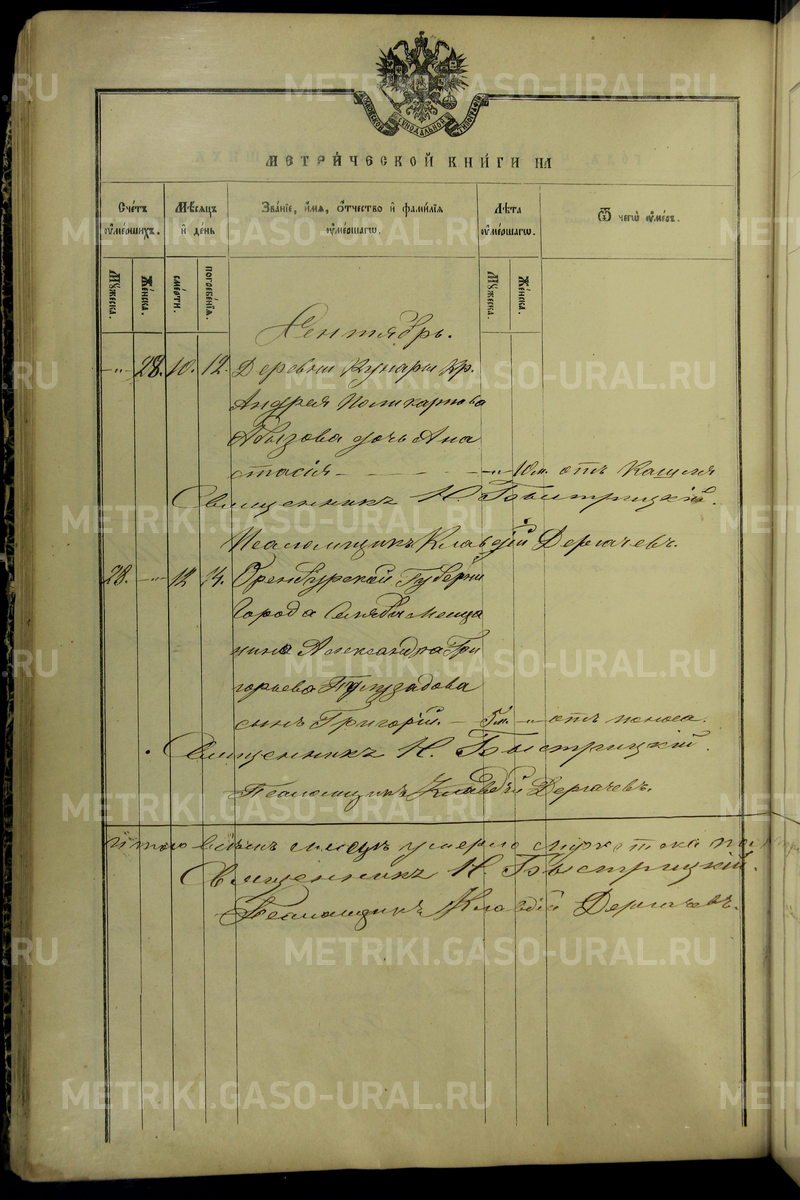 МОСКОВСКОЙ СѴНОДАЛЬНОЙ ТИПОГРАФІИ
МЕТРИ́ЧЕСКОЙ КНИ́ГИ НА
Сче́тъ ᲂу҆ме́ршихъ.
Мѣ́сяцъ и҆ де́нь
Зва́нїе, и҆́мя, ѻ҆́тчество и҆ фами́лїя ᲂу҆ме́ршагѡ.
Лѣ́та ᲂу҆ме́ршагѡ.
Ѿ чегѡ̀ ᲂу҆́меръ.
Мꙋ́жеска.
Же́нска.
сме́рти.
погребе́нїя.
Мꙋ́жеска.
Же́нска.
Сентябрь.
-"- 28. 10. 12. Деревни Кунары кр.
Андрея Поликарпова
Абызова дочь Ана
стасія - - - - -"- 10 м. отъ кашля
Священникъ Н. Быстрицкій.
Псаломщикъ Клавдій Дергачевъ.
28. -"- 12 14. Оренбургской Губерни
Города Мѣща
нина Александра Гри
горьева
сынъ Григорій. - 5 м. -"- отъ поноса.
Священникъ Н. Быстрицкій.
Псаломщикъ Клавдій Дергачевъ.
Итого въ семъ месяцѣ умерло мужеска
Священникъ Н. Быстрицкій.
Псаломщикъ Клавдій Дергачевъ.
METRIKI.GASO-URAL.RU